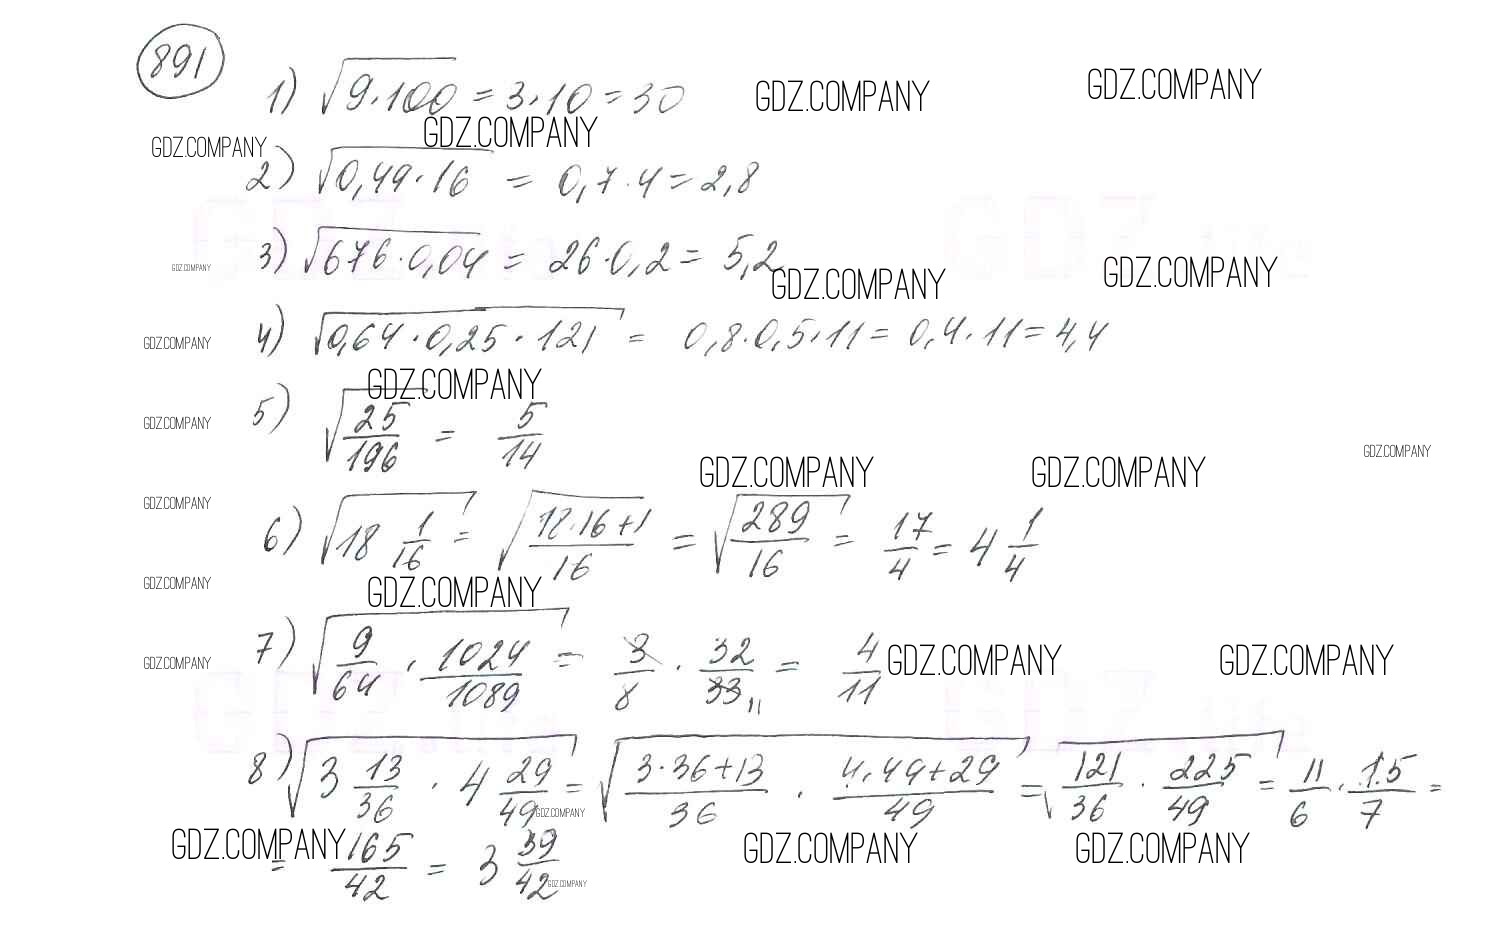 891
1) √9·100 = 3·10 = 30
GDZ.COMPANY GDZ.COMPANY
GDZ.COMPANY GDZ.COMPANY
2) √0,49·16 = 0,7·4 = 2,8
3) √676·0,04 = 26·0,2 = 5,2
GDZ.COMPANY GDZ.COMPANY GDZ.COMPANY
4) √0,64·0,25·121 = 0,8·0,5·11 = 0,4·11 = 4,4
GDZ.COMPANY
GDZ.COMPANY
5) √25/196 = 5/14
GDZ.COMPANY
GDZ.COMPANY GDZ.COMPANY GDZ.COMPANY
GDZ.COMPANY
6) √18 1/16 = √18·16+1/16 = √289/16 = 17/4 = 4 1/4
GDZ.COMPANY GDZ.COMPANY
7) √9/64 · 1024/1089 = 3/8 · 32/33 11 = 4/11
GDZ.COMPANY GDZ.COMPANY GDZ.COMPANY
8) √3 13/36 · 4 29/49 = √3·36+13/36 · 4·49+29/49 = √121/36 · 225/49 = 11/6 · 15/7 =
GDZ.COMPANY
= 165/42 = 3 39/42
GDZ.COMPANY GDZ.COMPANY GDZ.COMPANY
GDZ.COMPANY